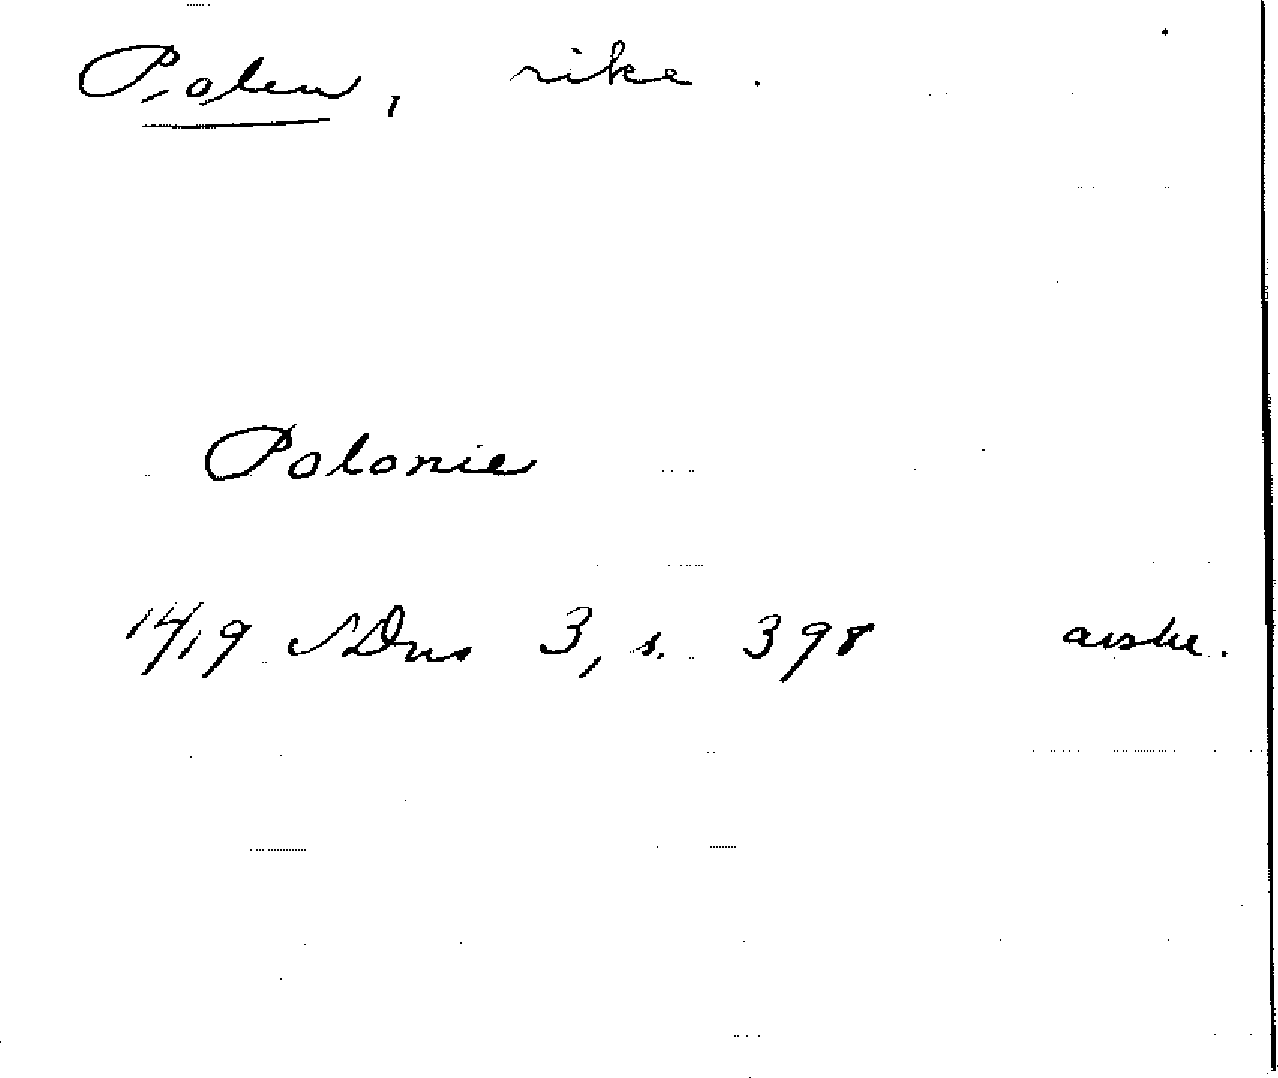 Polen, rike.
Polonie
1419 SDns 3, s. 398 avskr.